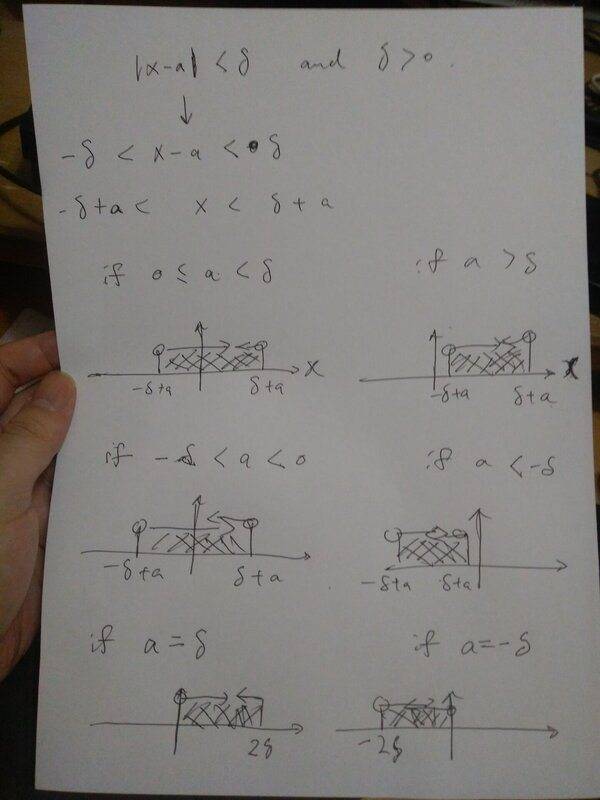 |x-a| < δ and δ > 0.
-δ < x-a < δ
-δ+a < x < δ+a
if 0 ≤ a < δ
if a > δ
x
-δ+a
δ+a
x
-δ+a
δ+a
if -δ < a < 0
if a < -δ
-δ+a
δ+a
-δ+a
δ+a
if a = δ
if a = -δ
2δ
-2δ